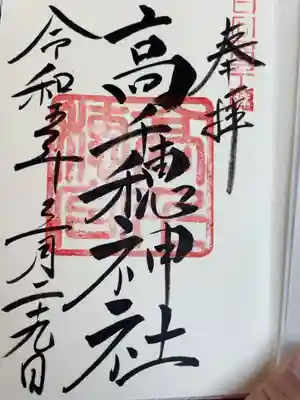 奉拝
高千穂神社
令和五年三月二十九日